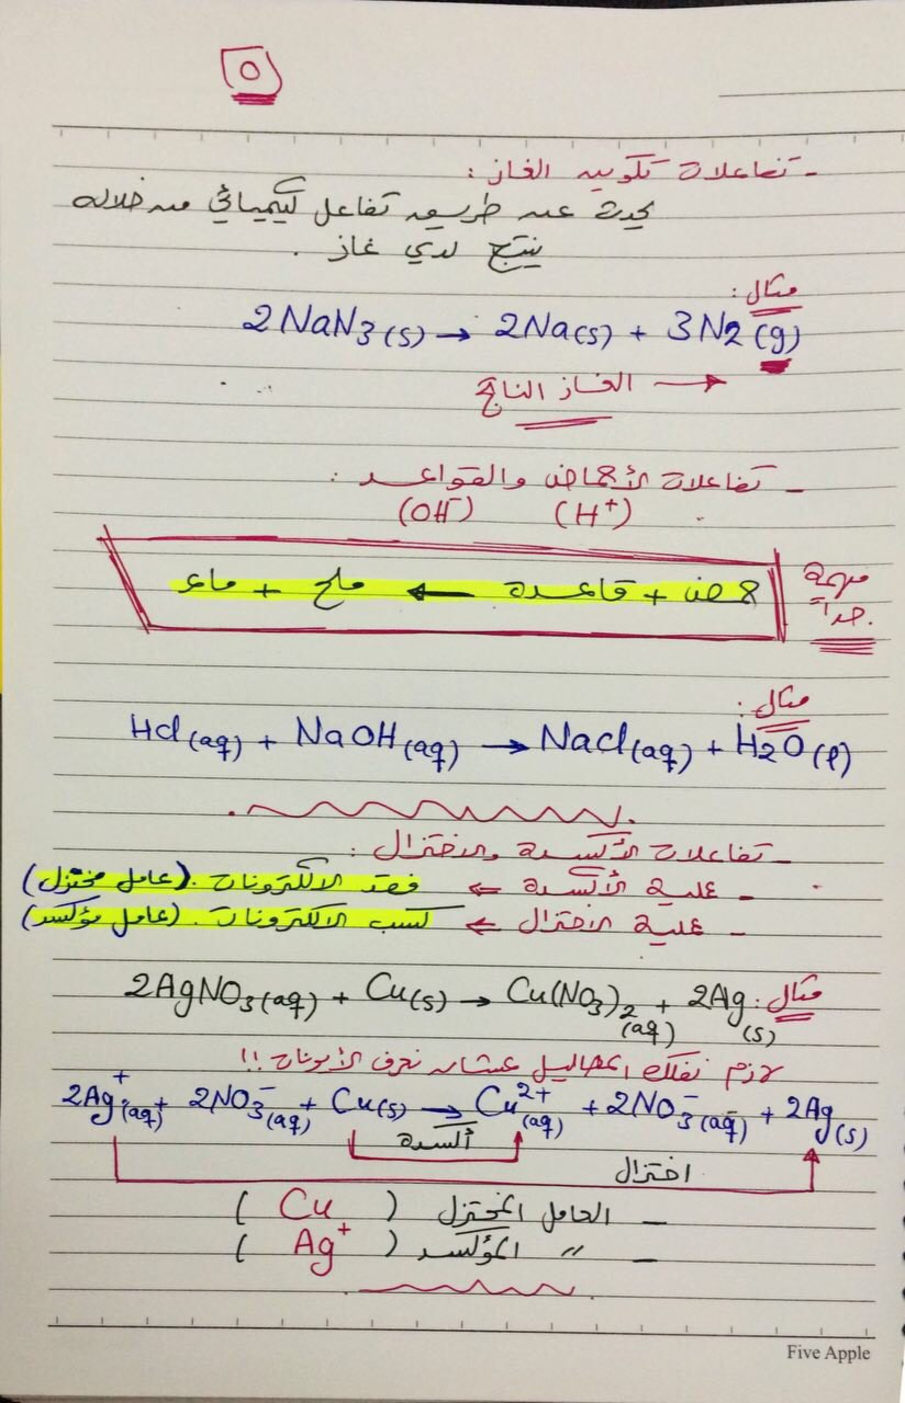 ٥
- تفاعلات تكوين الغاز :
يحدث عن طريق تفاعل كيميائي من خلاله
ينتج لدي غاز .
مثال :
2NaN3(s) → 2Na(s) + 3N2(g)
الغاز الناتج →
- تفاعلات الأحماض والقواعد :
(H+) (OH-)
حمض + قاعدة ← ملح + ماء
مهمة
جداً.
مثال :
HCl(aq) + NaOH(aq) → NaCl(aq) + H2O(l)
- تفاعلات الأكسدة والاختزال :
- عملية الأكسدة ← فقد الالكترونات . (عامل مختزل)
- عملية الاختزال ← كسب الالكترونات . (عامل مؤكسد)
مثال : 2AgNO3(aq) + Cu(s) → Cu(NO3)2(aq) + 2Ag(s)
لازم نفكك المحاليل عشان نعرف الأيونات !!
2Ag+(aq) + 2NO3-(aq) + Cu(s) → Cu2+(aq) + 2NO3-(aq) + 2Ag(s)
أكسدة
اختزال
- العامل المختزل ( Cu )
- " المؤكسد ( Ag+ )
Five Apple